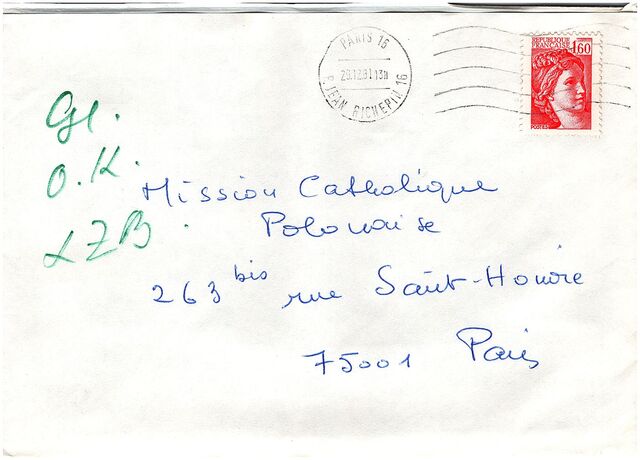 PARIS 16
20.12.81 13H
R. JEAN RICHEPIN 16
REPUBLIQUE
FRANÇAISE 1,60
POSTES
Gl.
O.K.
Mission Catholique
Polonaise
263 bis rue Saint-Honoré
75001 Paris